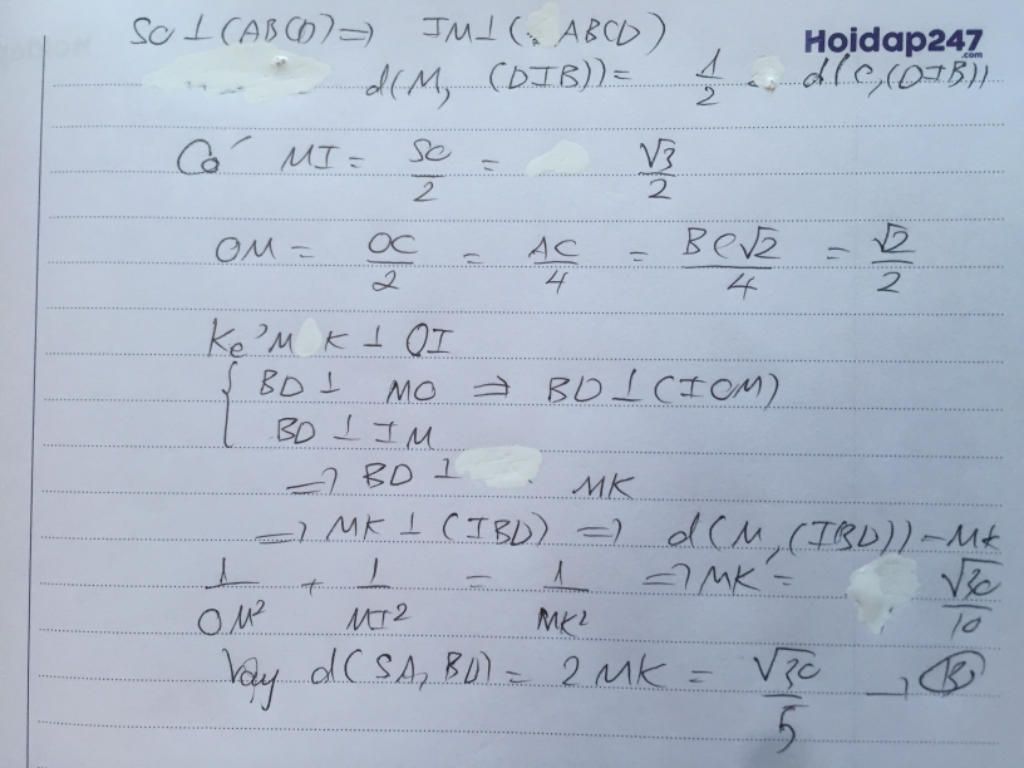 SC ⊥ (ABCD) ⇒ IM ⊥ (ABCD)
Hoidap247
.com
d(M, (DIB)) = 1/2 . d(C, (DIB))
Có MI = SC/2 = √3/2
OM = OC/2 = AC/4 = BC√2/4 = √2/2
Kẻ MK ⊥ OI
{ BD ⊥ MO ⇒ BD ⊥ (IOM)
BD ⊥ IM
⇒ BD ⊥ MK
⇒ MK ⊥ (IBD) ⇒ d(M, (IBD)) = MK
1/OM² + 1/MI² = 1/MK² ⇒ MK = √30/10
Vậy d(SA, BD) = 2MK = √30/5 → B